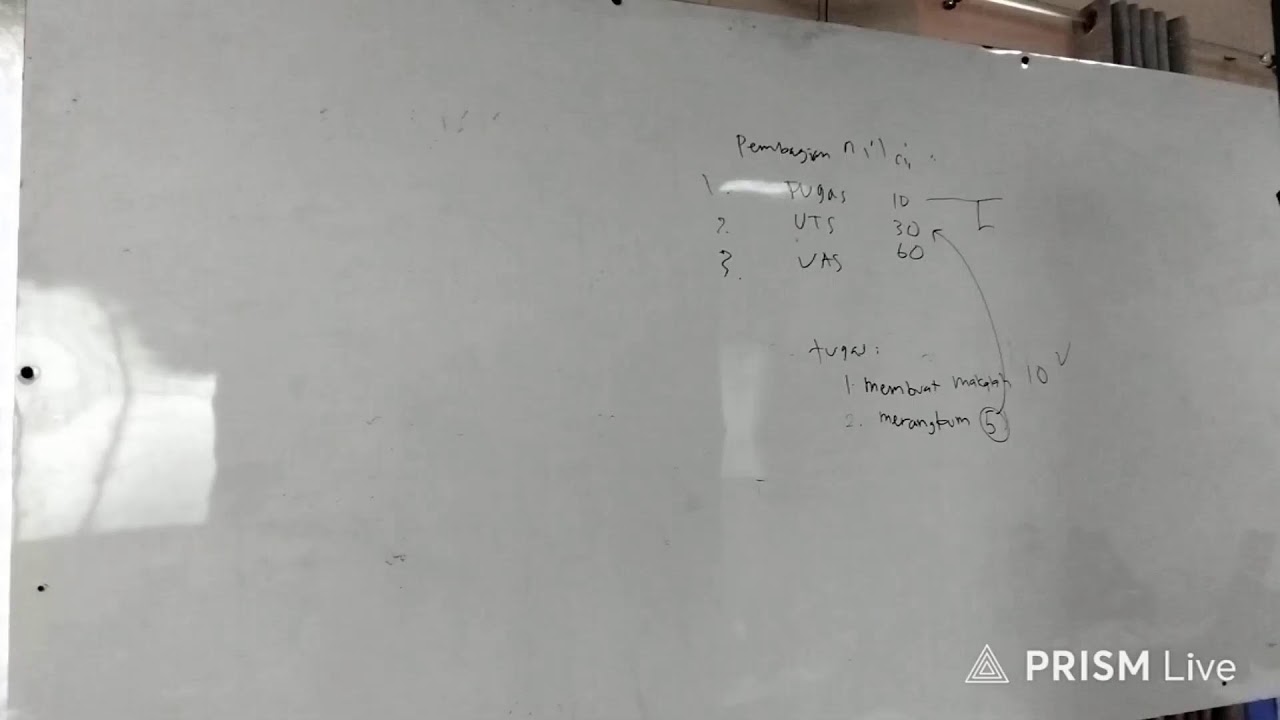 Pembagian nilai :
1. Tugas 10
2. UTS 30
3. UAS 60
tugas :
1. membuat makalah 10
2. merangkum 5
PRISM Live